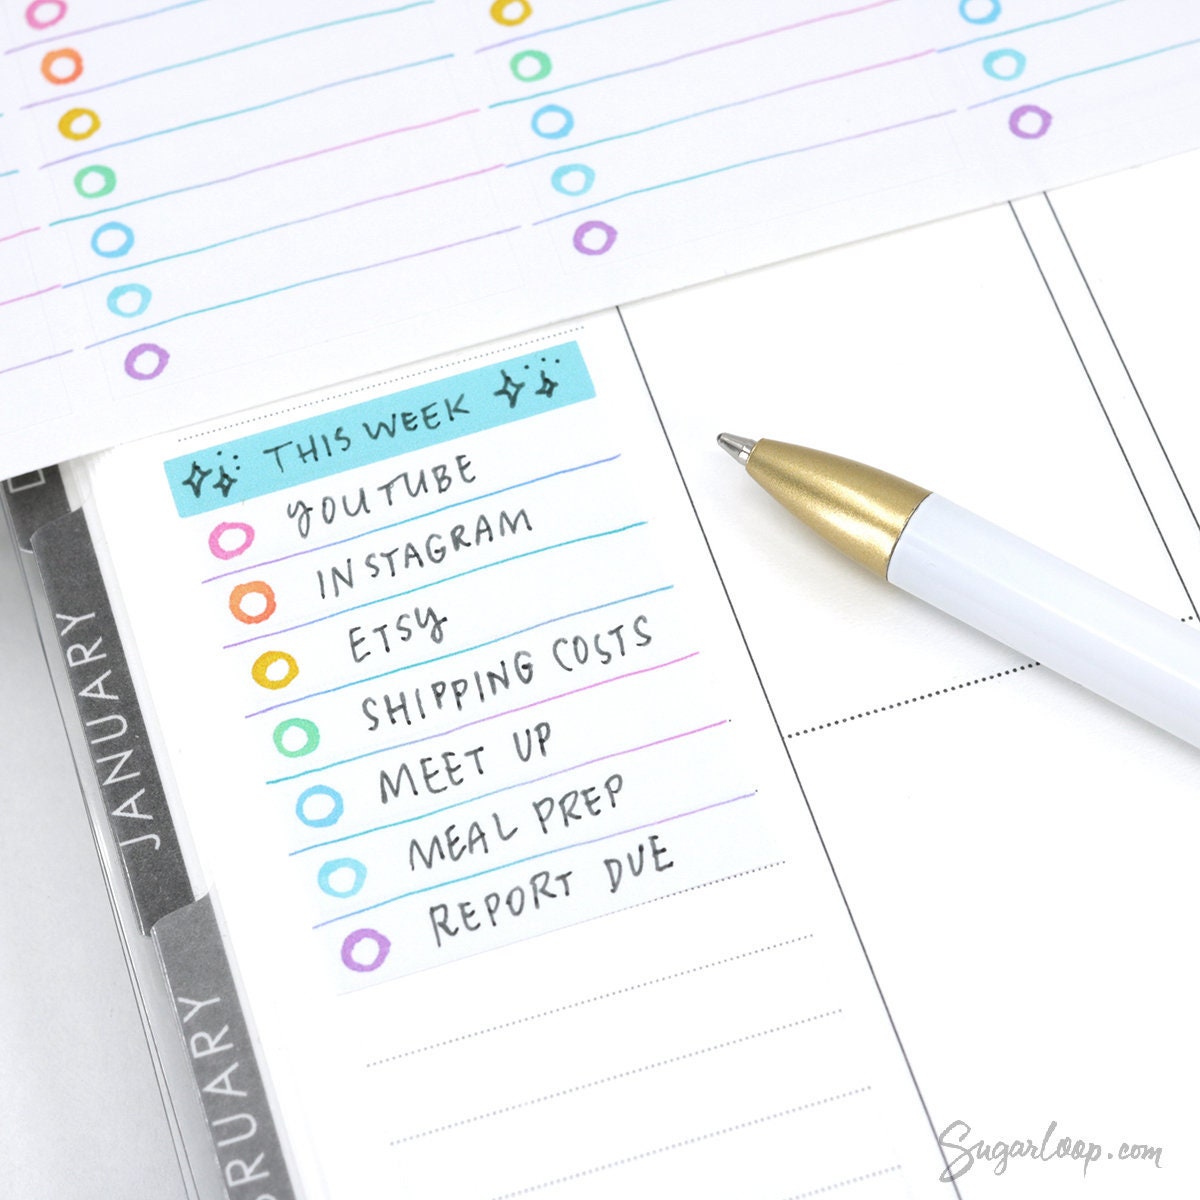 THIS WEEK
YOUTUBE
INSTAGRAM
ETSY
SHIPPING COSTS
MEET UP
MEAL PREP
REPORT DUE
JANUARY
BRUARY
Sugarloop.com